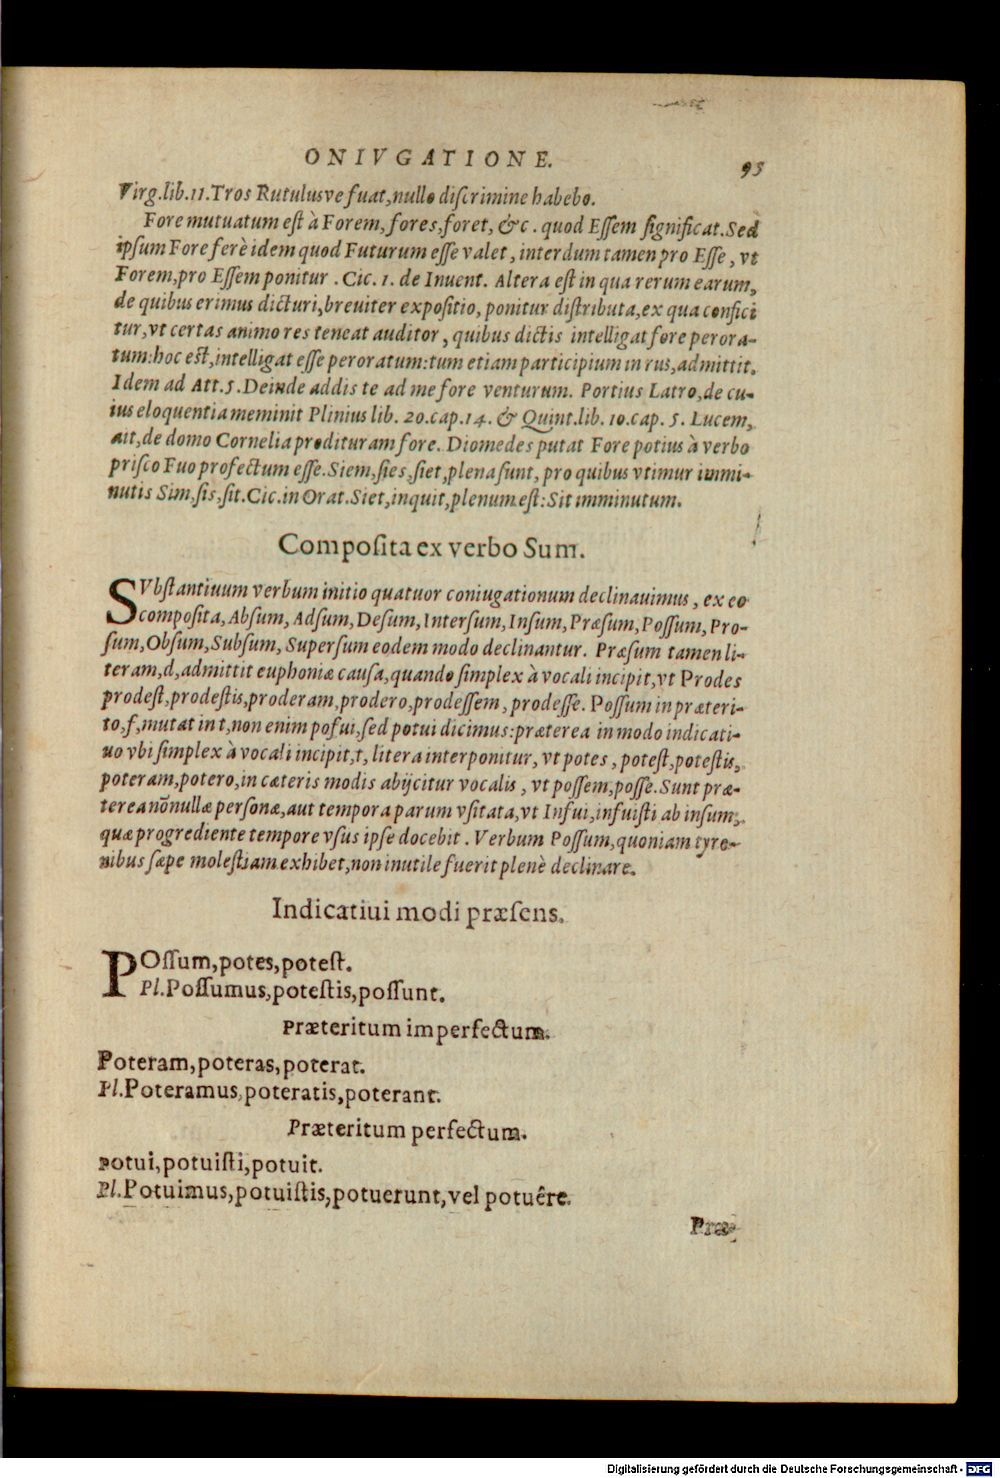 ONIVGATIONE. 93
Virg.lib.11.Tros Rutulusve fuat,nullo discrimine habebo.
Fore mutuatum est à Forem,fores,foret, &c. quod Essem significat.Sed
ipsum Fore ferè idem quod Futurum esse valet, interdum tamen pro Esse, vt
Forem,pro Essem ponitur. Cic. 1. de Inuent. Altera est in qua rerum earum,
de quibus erimus dicturi,breuiter expositio, ponitur distributa,ex qua confici
tur,vt certas animo res teneat auditor, quibus dictis intelligat fore perora-
tum:hoc est,intelligat esse peroratum:tum etiam participium in rus,admittit.
Idem ad Att.5.Deinde addis te ad me fore venturum. Portius Latro,de cu-
ius eloquentia meminit Plinius lib. 20.cap.14. & Quint.lib. 10.cap. 5. Lucem,
ait,de domo Cornelia prodituram fore. Diomedes putat Fore potius à verbo
prisco Fuo profectum esse.Siem,sies,siet,plena sunt, pro quibus vtimur immi-
nutis Sim,sis,sit.Cic.in Orat.Siet,inquit,plenum est:Sit imminutum.
Composita ex verbo Sum.
SVbstantiuum verbum initio quatuor coniugationum declinauimus, ex eo
composita,Absum, Adsum, Desum,Intersum, Insum, Præsum,Possum, Pro-
sum,Obsum,Subsum, Supersum eodem modo declinantur. Præsum tamen li-
teram,d,admittit euphoniæ causa,quando simplex à vocali incipit,vt Prodes
prodest,prodestis,proderam,prodero,prodessem, prodesse. Possum in præteri-
to,f,mutat in t,non enim pofui,sed potui dicimus:præterea in modo indicati-
uo vbi simplex à vocali incipit,t, litera interponitur, vt potes, potest,potestis,
poteram,potero,in cæteris modis abijcitur vocalis, vt possem,posse.Sunt præ-
terea nõnullæ personæ,aut tempora parum vsitata,vt Infui,infuisti ab insum,
quæ progrediente tempore vsus ipse docebit. Verbum Possum,quoniam tyro-
nibus sæpe molestiam exhibet,non inutile fuerit plenè declinare.
Indicatiui modi præsens.
POssum,potes,potest.
Pl.Possumus,potestis,possunt.
Præteritum imperfectum.
Poteram,poteras,poterat.
Pl.Poteramus,poteratis,poterant.
Præteritum perfectum.
Potui,potuisti,potuit.
Pl.Potuimus,potuistis,potuerunt,vel potuêre.
Præ-
Digitalisierung gefördert durch die Deutsche Forschungsgemeinschaft - DFG